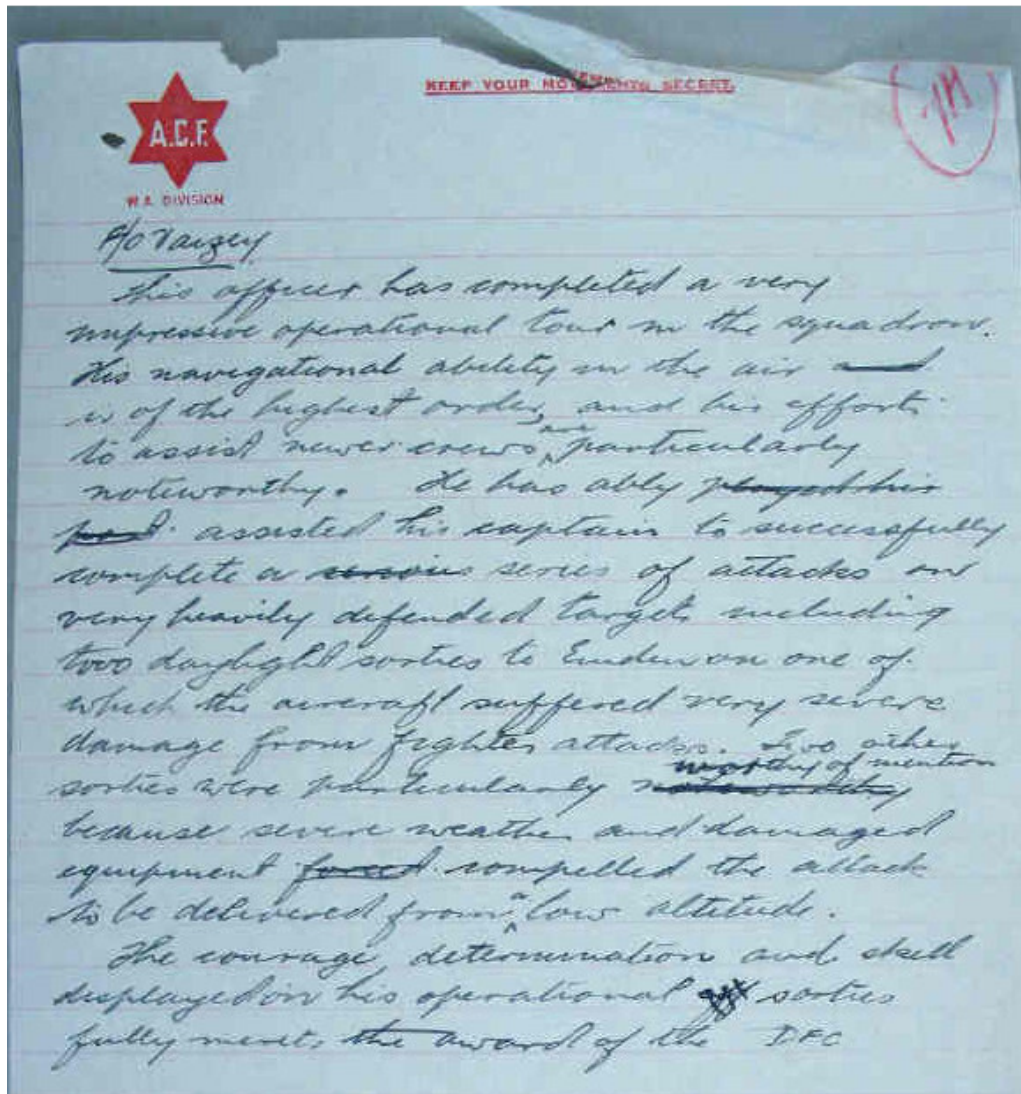 KEEP YOUR MOVEMENTS SECRET.
A.C.F.
W.A. DIVISION
F/O Vaizey
This officer has completed a very
impressive operational tour in the squadron.
His navigational ability in the air and
is of the highest order, and his efforts
to assist newer crews are particularly
noteworthy. He has ably played his
part assisted his captain to successfully
complete a serious series of attacks on
very heavily defended targets including
two daylight sorties to Emden on one of
which the aircraft suffered very severe
damage from fighter attacks. Two other
sorties were particularly noteworthy worthy of mention
because severe weather and damaged
equipment forced compelled the attack
to be delivered from a low altitude.
The courage, determination and skill
displayed in his operational sorties
fully merits the award of the DFC